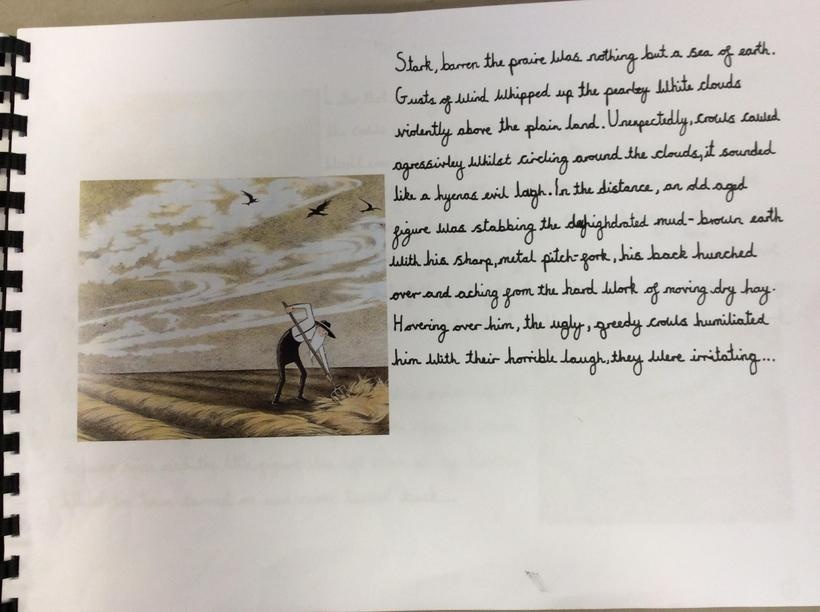 Stark, barren the praire was nothing but a sea of earth.
Gusts of wind whipped up the pearley white clouds
violently above the plain land. Unexpectedly, crows cawed
agressivley whilst circling around the clouds, it sounded
like a hyenas evil laugh. In the distance, an old aged
figure was stabbing the mud-brown earth
with his sharp, metal pitch-fork, his back hunched
over and aching from the hard work of moving dry hay.
Hovering over him, the ugly, greedy crows humiliated
him with their horrible laugh, they were irritating...